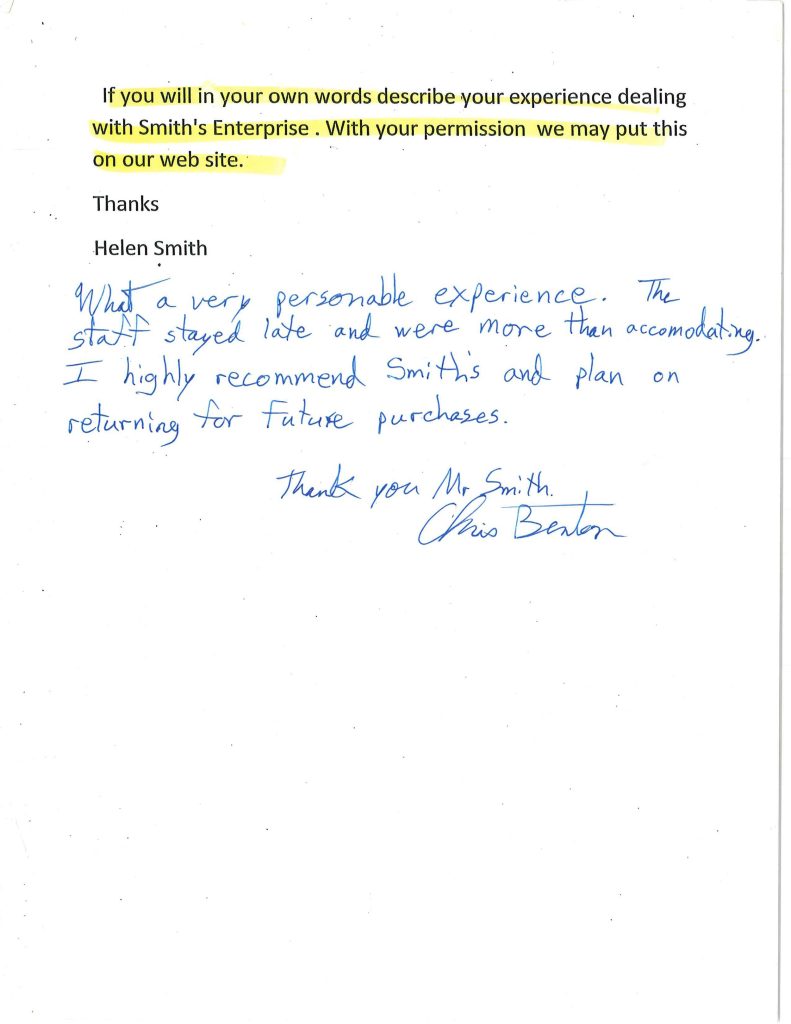 If you will in your own words describe your experience dealing
with Smith's Enterprise . With your permission we may put this
on our web site.
Thanks
Helen Smith
What a very personable experience. The
staff stayed late and were more than accomodating.
I highly recommend Smith's and plan on
returning for future purchases.
Thank you Mr Smith.
Chris Benton